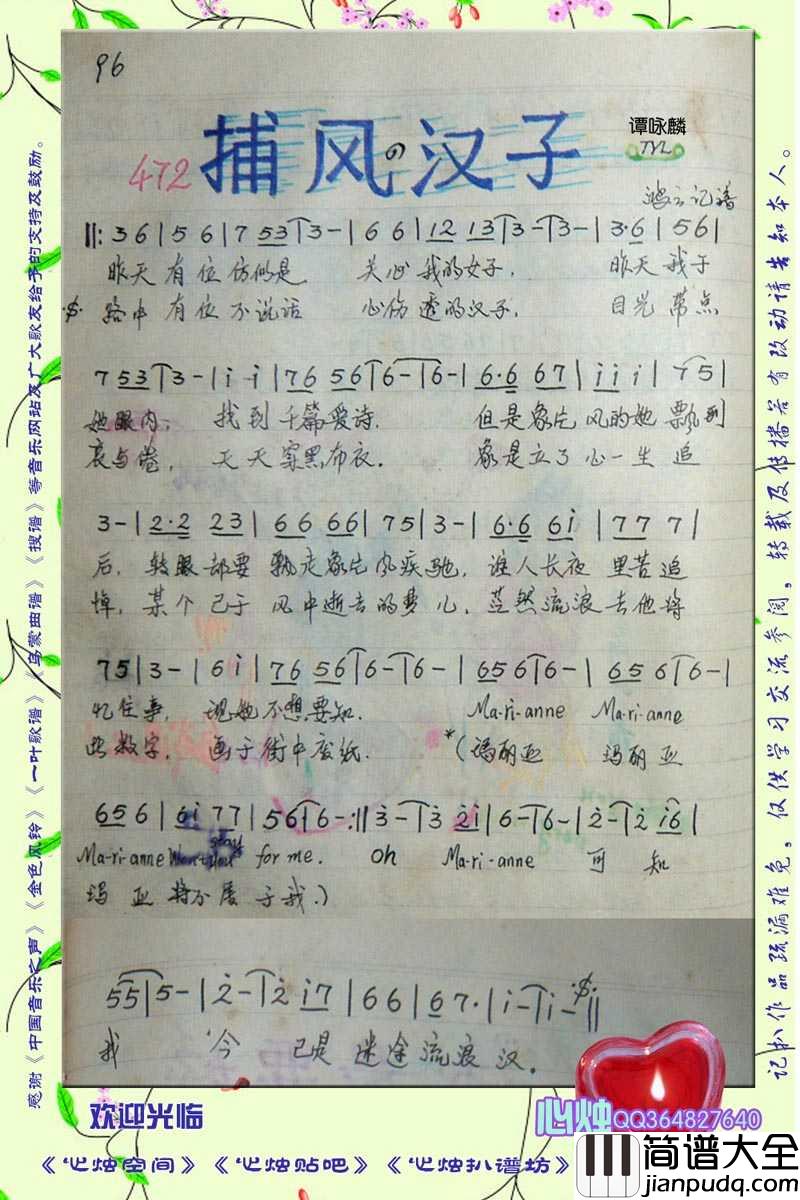 96
捕风の汉子
谭咏麟
TYL
472
鸿云记谱
‖: 3 6 | 5 6 | 7 53 | 3 - | 6 6 | 12 13 | 3 - | 3 - | 3·6 | 5 6 |
昨天 有位 仿似是 关心 我的女子. 昨天 我于
路中 有位 不说话 心伤 透的汉子. 目光 带点
7 53 | 3 - | i i | 76 56 | 6 - | 6 - | 6·6 67 | i i i | 7 5 |
她眼内, 找到 千篇爱诗. 但是象片 风的她 飘到
哀与倦, 天天 穿黑布衣. 象是立了 心一生 追
3 - | 2·2 23 | 66 66 | 75 | 3 - | 6·6 6i | 77 7 |
后, 转眼却要 飘走象片 风疾驰, 谁人长夜 里苦追
悼, 某个已于 风中逝去的梦儿, 茫然流浪 去他将
75 | 3 - | 6 i | 76 56 | 6 - | 6 - | 656 | 6 - | 65 6 | 6 - |
忆往事, 现她 不想要知. Ma-ri-anne Ma-ri-anne
些数字, 画于 街中废纸. *(玛丽亚 玛丽亚
656 | 6i 77 | 56 | 6 - :‖ 3 - | 3 2i | 6 - | 6 - | 2 - | 2 i6 |
Ma-ri-anne Won't you stay for me. Oh Ma-ri-anne 可 知
玛 亚 将不属 于我.)
55 | 5 - | 2 - | 2 i7 | 66 | 67· | i - | i - ‖
我 今 已是 迷途 流浪 汉.
感谢《中国音乐之声》《金色风铃》《一叶歌谱》《乌蒙曲谱》《搜谱》等音乐网站及广大歌友给予的支持及鼓励。
记扒作品疏漏难免,仅供学习交流参阅,转载及传播若有改动请告知本人。
欢迎光临
心烛QQ364827640
《心烛空间》《心烛贴吧》《心烛扒谱坊》
简谱大全
jianpudq.com